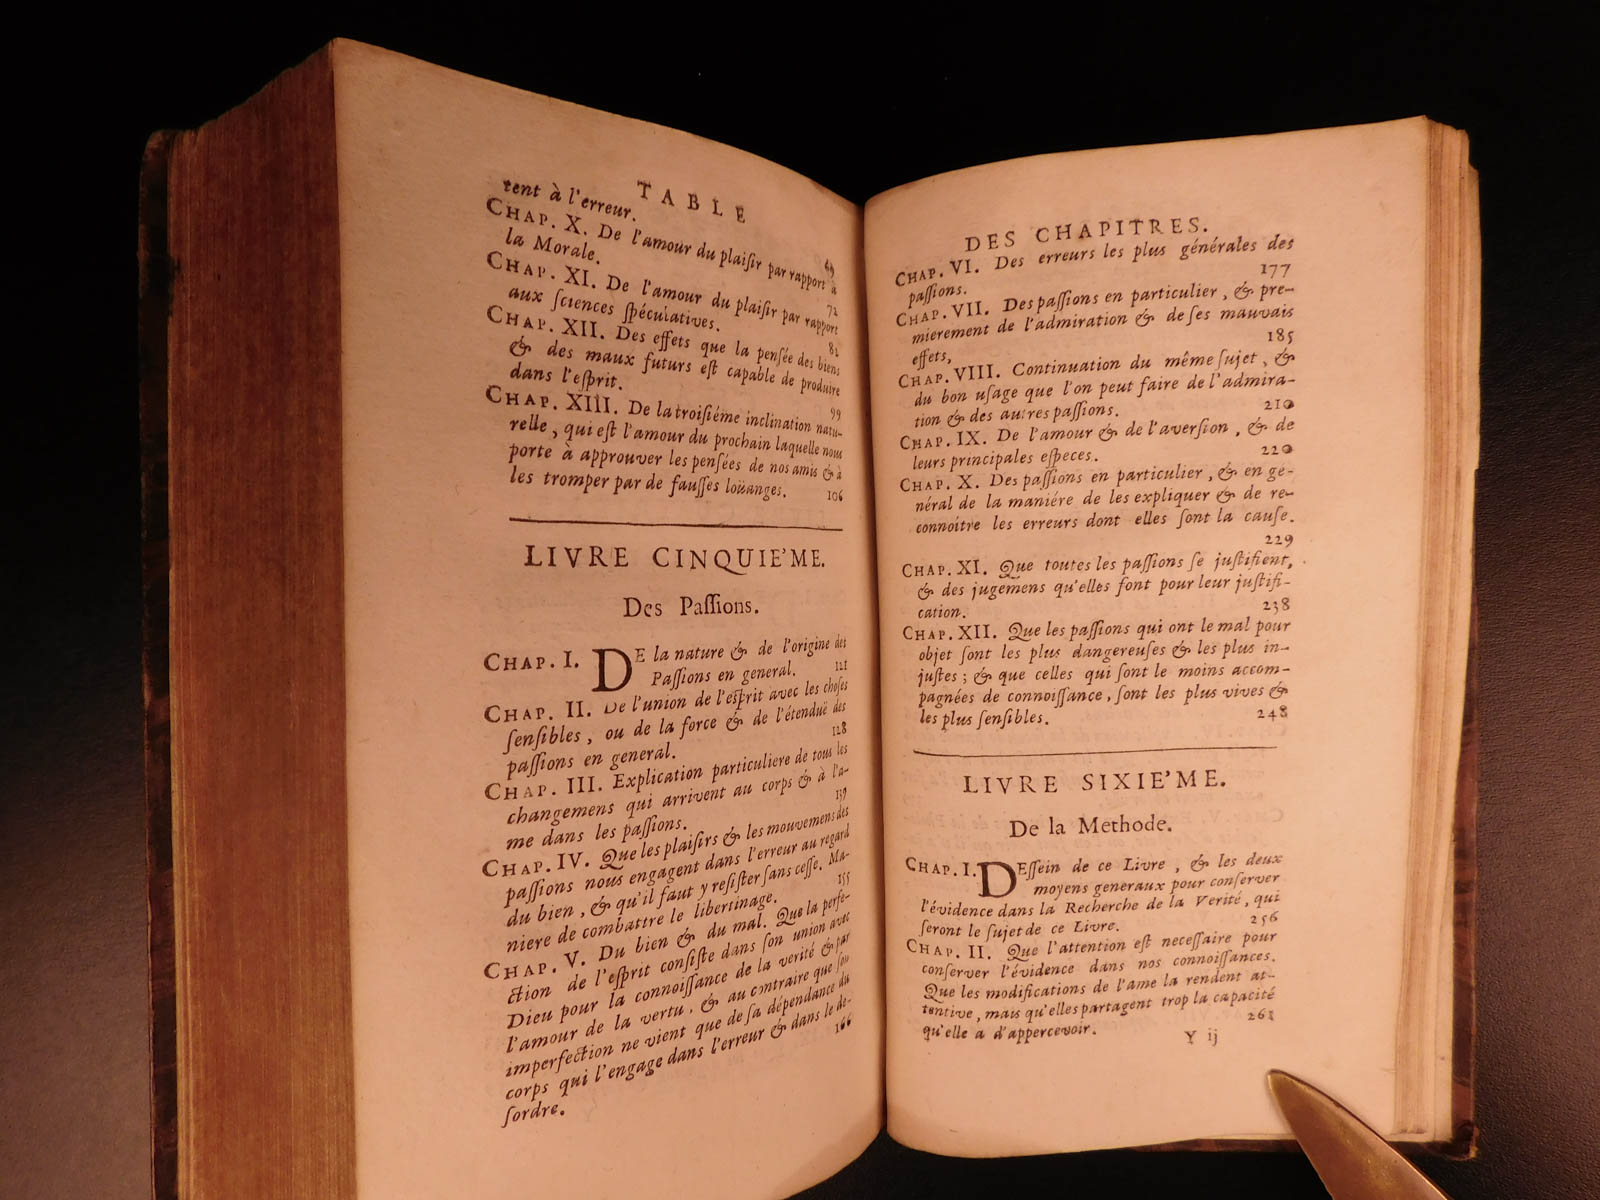 TABLE
tent à l'erreur. 69
CHAP. X. De l'amour du plaiſir par rapport à
la Morale. 72
CHAP. XI. De l'amour du plaiſir par rapport
aux ſciences ſpéculatives. 82
CHAP. XII. Des effets que la penſée des biens
& des maux futurs eſt capable de produire
dans l'eſprit. 99
CHAP. XIII. De la troiſiéme inclination natu-
relle, qui eſt l'amour du prochain laquelle nous
porte à approuver les penſées de nos amis & à
les tromper par de fauſſes loüanges. 106
LIVRE CINQUIE'ME.
Des Paſſions.
CHAP. I. DE la nature & de l'origine des
Paſſions en general. 121
CHAP. II. De l'union de l'eſprit avec les choſes
ſenſibles, ou de la force & de l'étenduë des
paſſions en general. 128
CHAP. III. Explication particuliere de tous les
changemens qui arrivent au corps & à l'a-
me dans les paſſions. 139
CHAP. IV. Que les plaiſirs & les mouvemens des
paſſions nous engagent dans l'erreur au regard
du bien, & qu'il faut y reſiſter ſans ceſſe. Ma-
niere de combattre le libertinage. 155
CHAP. V. Du bien & du mal. Que la perfe-
ction de l'eſprit conſiſte dans ſon union avec
Dieu pour la connoiſſance de la verité & par
l'amour de la vertu, & au contraire que ſon
imperfection ne vient que de ſa dépendance du
corps qui l'engage dans l'erreur & dans le de-
ſordre. 166
DES CHAPITRES.
CHAP. VI. Des erreurs les plus générales des
paſſions. 177
CHAP. VII. Des paſſions en particulier, & pre-
mierement de l'admiration & de ſes mauvais
effets, 185
CHAP. VIII. Continuation du même ſujet, &
du bon uſage que l'on peut faire de l'admira-
tion & des autres paſſions. 210
CHAP. IX. De l'amour & de l'averſion, & de
leurs principales eſpeces. 220
CHAP. X. Des paſſions en particulier, & en gé-
néral de la maniére de les expliquer & de re-
connoître les erreurs dont elles ſont la cauſe.
229
CHAP. XI. Que toutes les paſſions ſe juſtifient,
& des jugemens qu'elles font pour leur juſtifi-
cation. 238
CHAP. XII. Que les paſſions qui ont le mal pour
objet ſont les plus dangereuſes & les plus in-
juſtes; & que celles qui ſont le moins accom-
pagnées de connoiſſance, ſont les plus vives &
les plus ſenſibles. 248
LIVRE SIXIE'ME.
De la Methode.
CHAP. I. DEſſein de ce Livre, & les deux
moyens generaux pour conſerver
l'évidence dans la Recherche de la Verité, qui
ſeront le ſujet de ce Livre. 256
CHAP. II. Que l'attention eſt neceſſaire pour
conſerver l'évidence dans nos connoiſſances.
Que les modifications de l'ame la rendent at-
tentive, mais qu'elles partagent trop la capacité
qu'elle a d'appercevoir. 261
Y ij